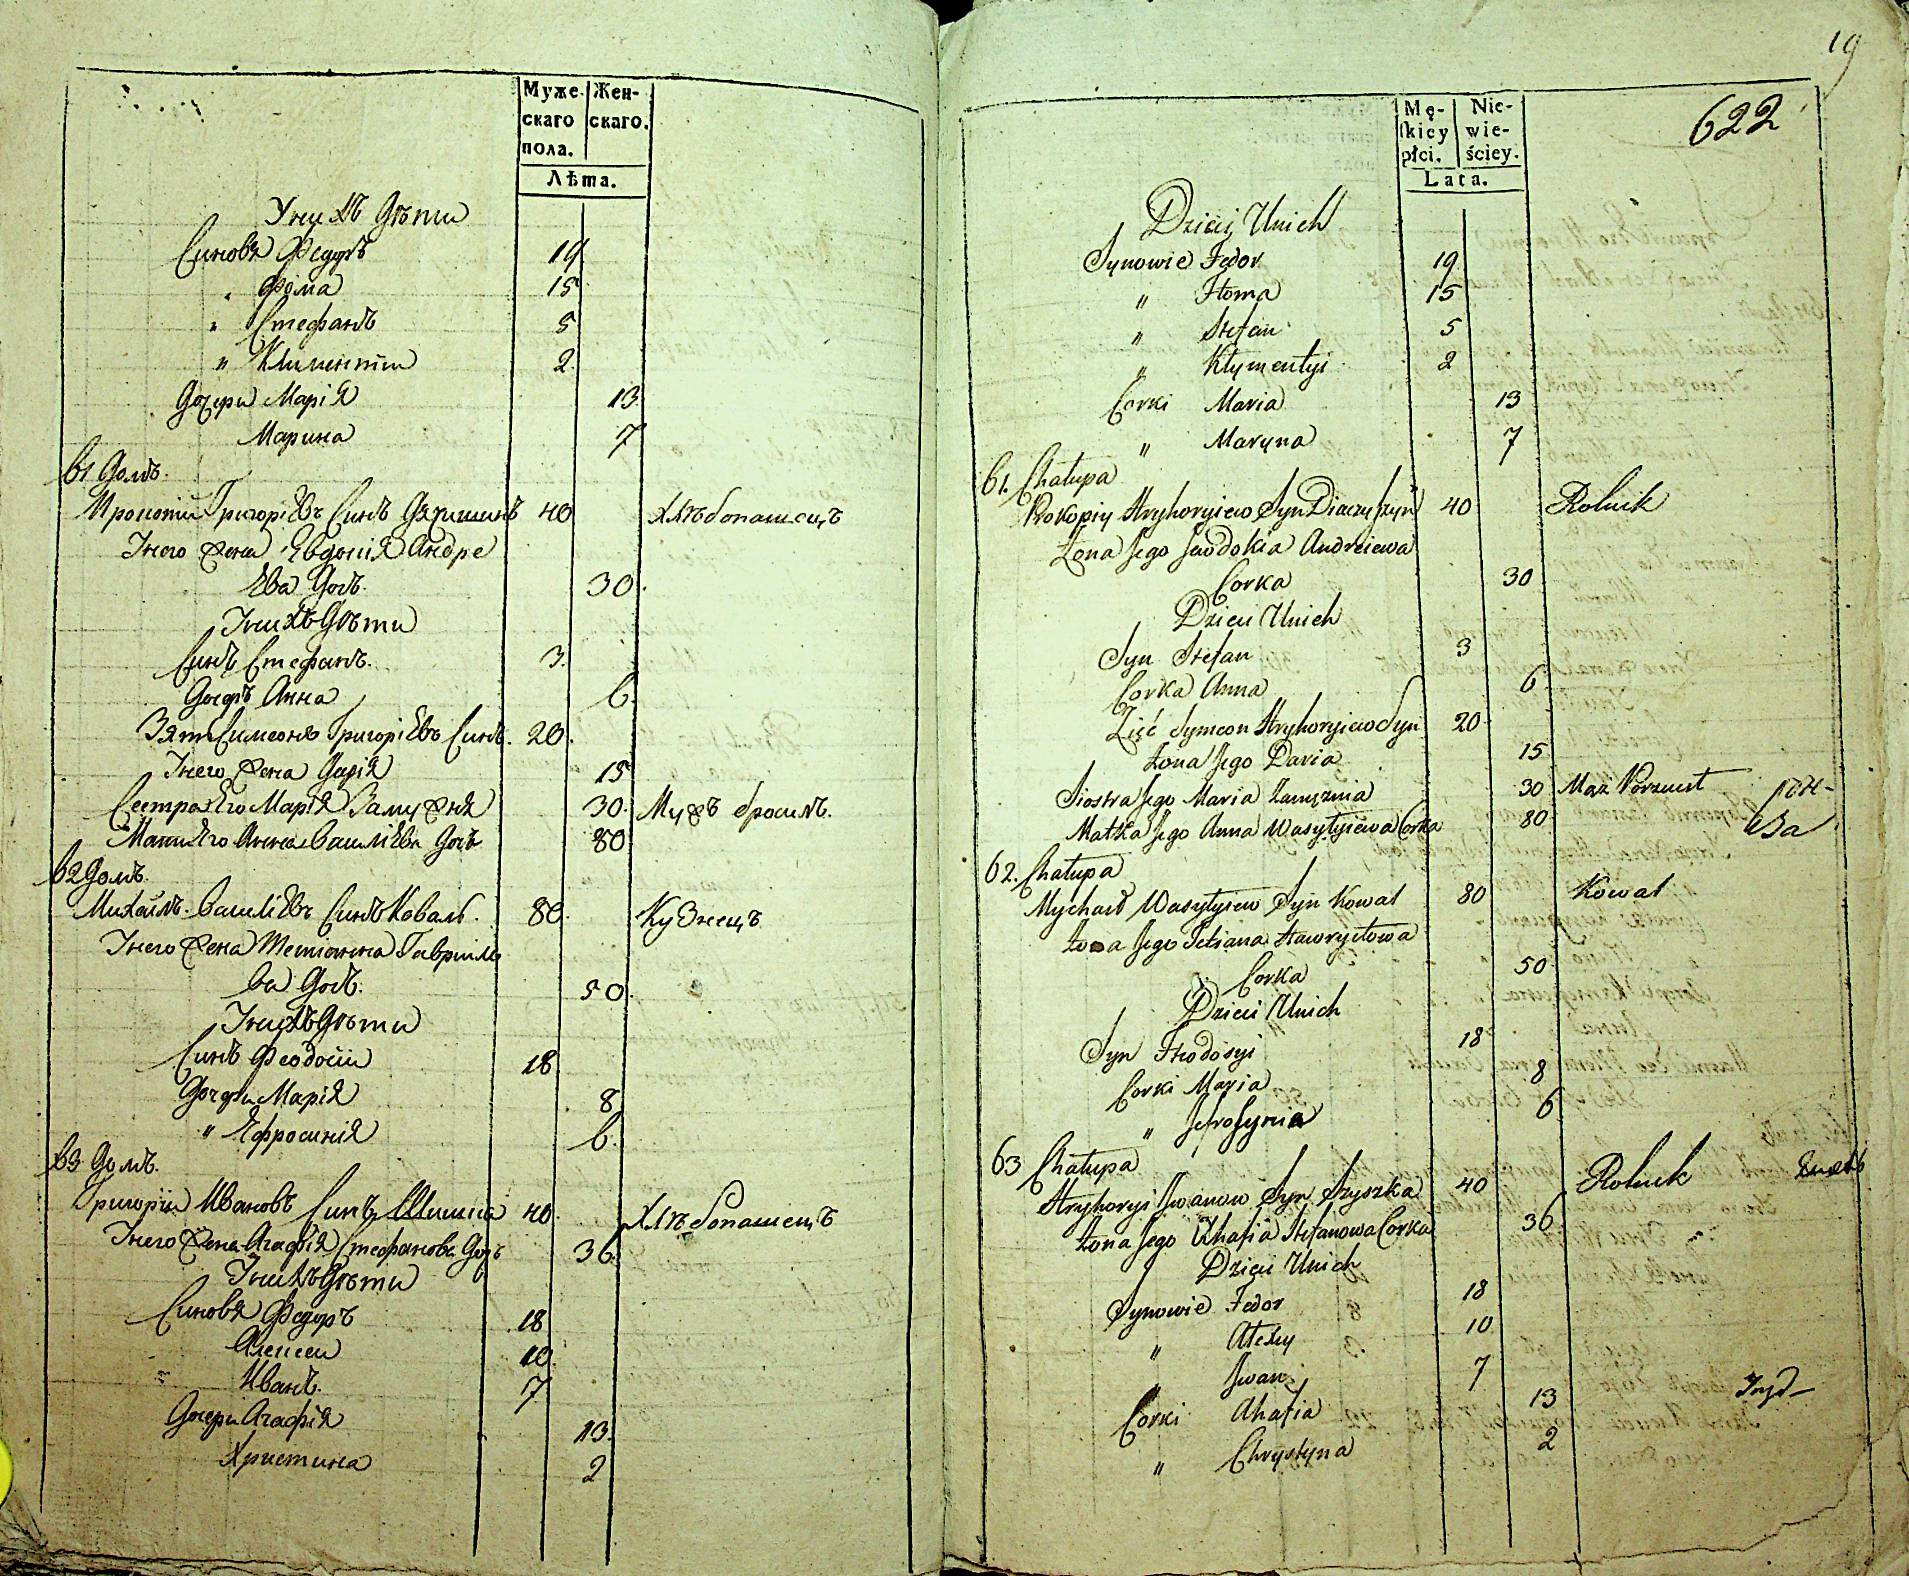 Муже- Жен-
скаго скаго.
пола.
Лѣта.
У нихъ Дѣти
Синовя Федоръ 19
" Фома 15
" Стефанъ 5
" Климентии 2
Дочери Марія 13
Марина 7
61 Домъ.
Прокопій Григоріевъ Синъ Дячишинъ 40 Хлѣбопашецъ
У него Жена Евдокія Андре
Ева Дочь. 30
У нихъ Дѣти
Синъ Стефанъ. 3.
Дочеръ Анна 6.
Зять Симеонъ Григоріевъ Синъ. 20.
У него Жена Дарія 15
Сестра Его Марія Замужня 30. Мужъ бросилъ.
Мати Его Анна Василіева Дочь 80
62 Домъ.
Михаилъ Василіевъ Синъ Коваль. 80. Кузнецъ
У него Жена Тетіанна Гавриило
ва Дочь. 50.
У нихъ Дѣти
Синъ Феодосіи 18
Дочери Марія 8
" Ефросинія 6.
63 Домъ.
Григоріи Ивановъ Синъ Шишка 40. Хлѣбопашецъ
У него Жена Агафія Стефанова Дочь 36.
У нихъ Дѣти
Синовя Федоръ 18
Алексеи 10.
" Иванъ. 7
Дочери Агафія 13.
Христина 2
19
622
Mę- Nie-
ſkiey wie-
płci. ściey.
Lata.
Dzieci Unich
Synowie Fedor 19
" Homa 15
" Stefan 5
" Kłymentyi 2
Corki Maria 13
" Maryna 7
61. Chałupa
Prokopiy Hryhoryiew Syn Diaczyszyn 40 Rolnik
Żona Jego Jewdokia Andreiewa
Corka 30
Dzieci Unich
Syn Stefan 3
Corka Anna 6
Zięć Symeon Hryhoryiew Syn 20
Żona Jego Daria 15
Siostra Jego Maria Zamężnia 30 Mąż Porzucił
Matka Jego Anna Wasylyiewa Corka 80
62. Chałupa
Mychaił Wasylyiew Syn Kowal 80 Kowal
Żona Jego Tetiana Hawryłowa
Corka 50
Dzieci Unich
Syn Fteodosyi 18
Corki Maria 8
" Jefrosynia 6
63 Chałupa
Hryhoryi Jwanow Syn Szyszka 40 Rolnik
Żona Jego Ahafia Stefanowa Corka 36
Dzieci Unich
Synowie Fedor 18
" Alexy 10
" Jwan 7
Corki Ahafia 13
" Chrystyna 2